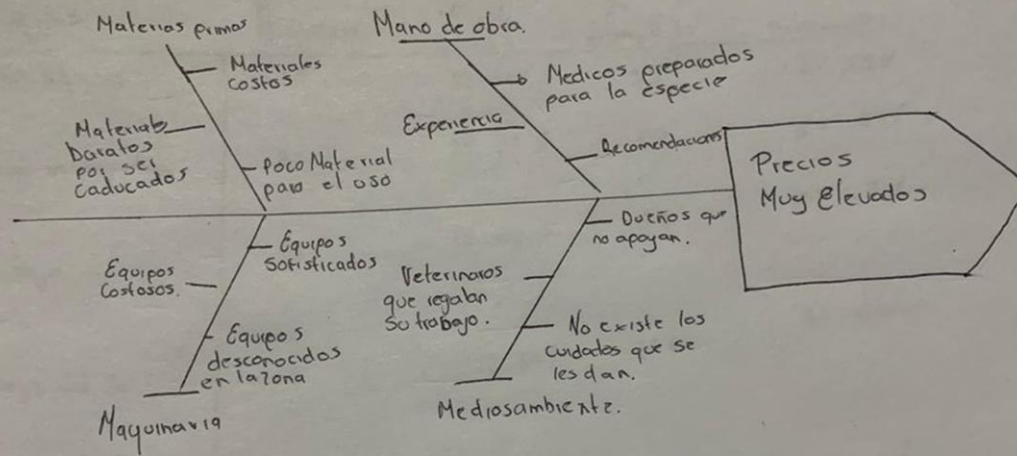 Materias primas
Materiales
costos
Materiales
baratos
por ser
caducados
Poco Material
para el uso
Mano de obra.
Medicos preparados
para la especie
Experiencia
Recomendaciones
Precios
Muy elevados
Equipos
sofisticados
Equipos
Costosos.
Equipos
desconocidos
en la zona
Maquinaria
Dueños que
no apoyan.
Veterinaros
que regalan
su trabajo.
No existe los
cuidados que se
les dan.
Mediosambiente.